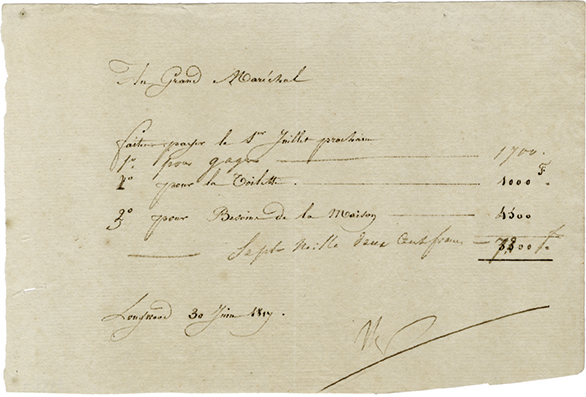 Au Grand Maréchal
faites payer le 1er Juillet prochain
1o. pour gages 1700.
2o pour la Toilette. 1000 F.
3o pour Besoins de la Maison 4500
Sept Mille deux Cent francs 7200 f.
Longwood 30 Juin 1817.